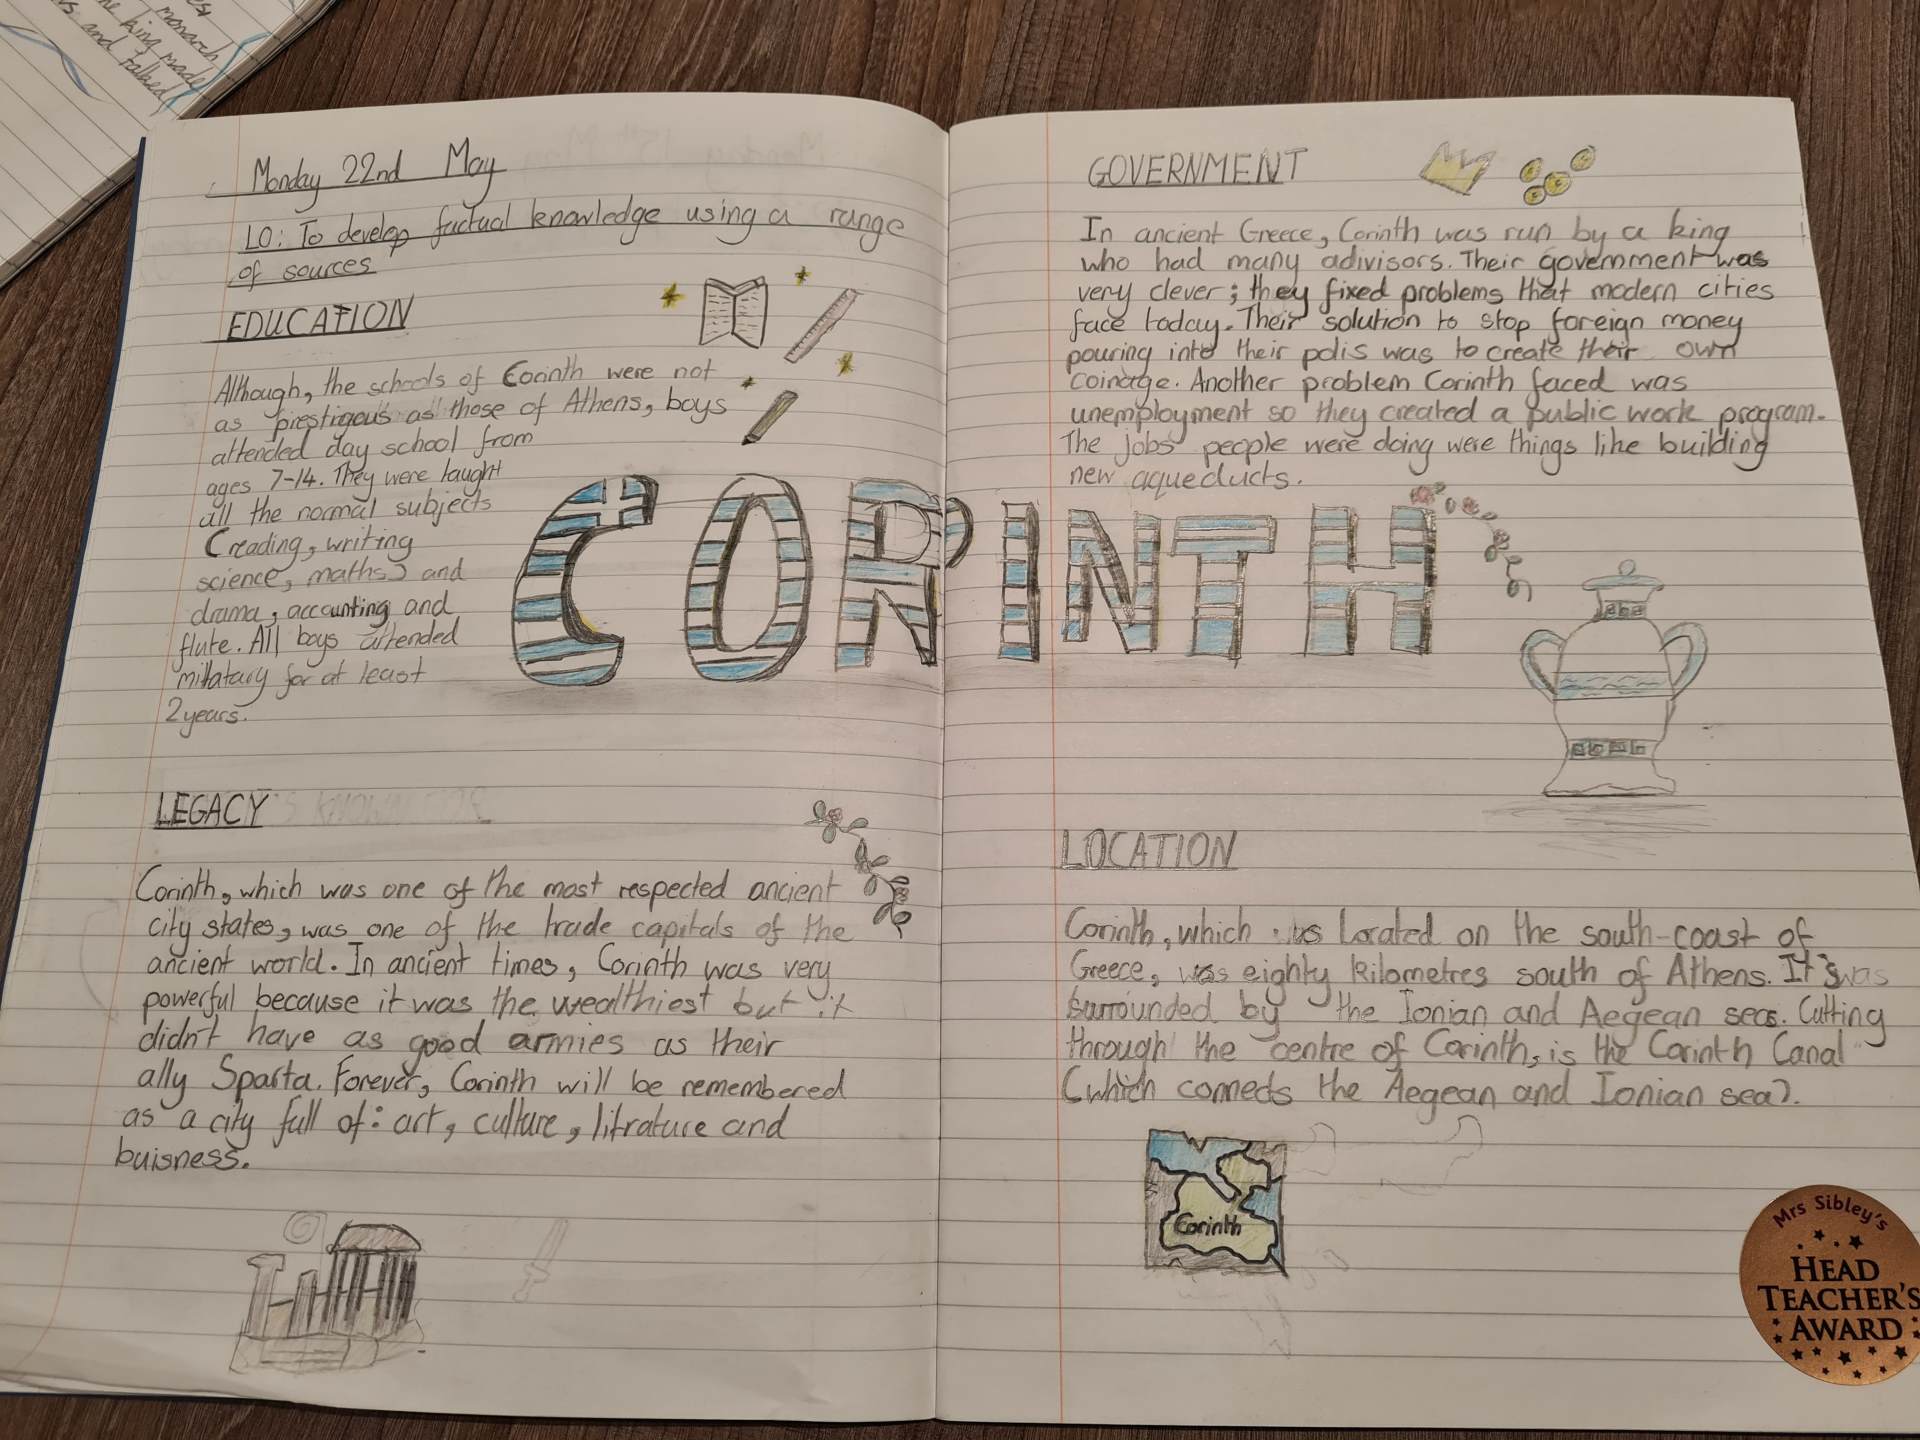 monarch
he king made
and talked
Monday 22nd May
LO: To develop factual knowledge using a range
of sources
EDUCATION
Although, the schools of Corinth were not
as prestigous as those of Athens, boys
attended day school from
ages 7-14. They were taught
all the normal subjects
(reading, writing
science, maths) and
drama, accounting and
flute. All boys attended
millatary for at least
2 years.
CORINTH
LEGACY
Corinth, which was one of the most respected ancient
city states, was one of the trade capitals of the
ancient world. In ancient times, Corinth was very
powerful because it was the wealthiest but it
didn't have as good armies as their
ally Sparta. Forever, Corinth will be remembered
as a city full of: art, culture, litrature and
buisness.
GOVERNMENT
In ancient Greece, Corinth was run by a king
who had many adivisors. Their government was
very clever; they fixed problems that modern cities
face today. Their solution to stop foreign money
pouring into their polis was to create their own
coinage. Another problem Corinth faced was
unemployment so they created a public work program.
The jobs people were doing were things like building
new aqueducts.
LOCATION
Corinth, which is located on the south-coast of
Greece, was eighty kilometres south of Athens. It's was
surrounded by the Ionian and Aegean seas. Cutting
through the centre of Corinth, is the Corinth Canal
(which connects the Aegean and Ionian sea).
Corinth
Mrs Sibley's
HEAD
TEACHER'S
AWARD